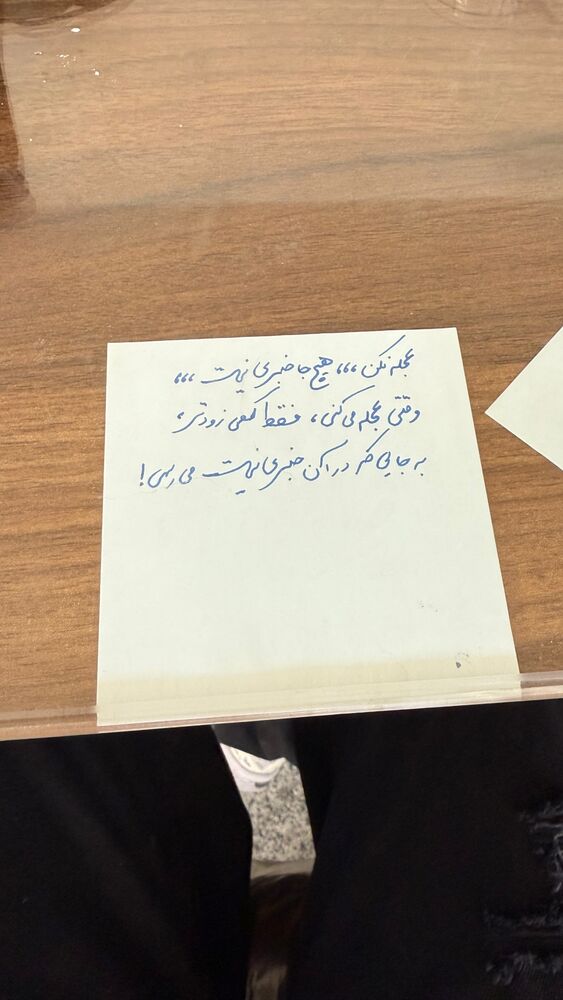 عجله نکن ،،، هیچ جا خبری نیست ،،،
وقتی عجله می‌کنی، فقط کمی زودتر،
به جایی که در آن خبری نیست می رسی!